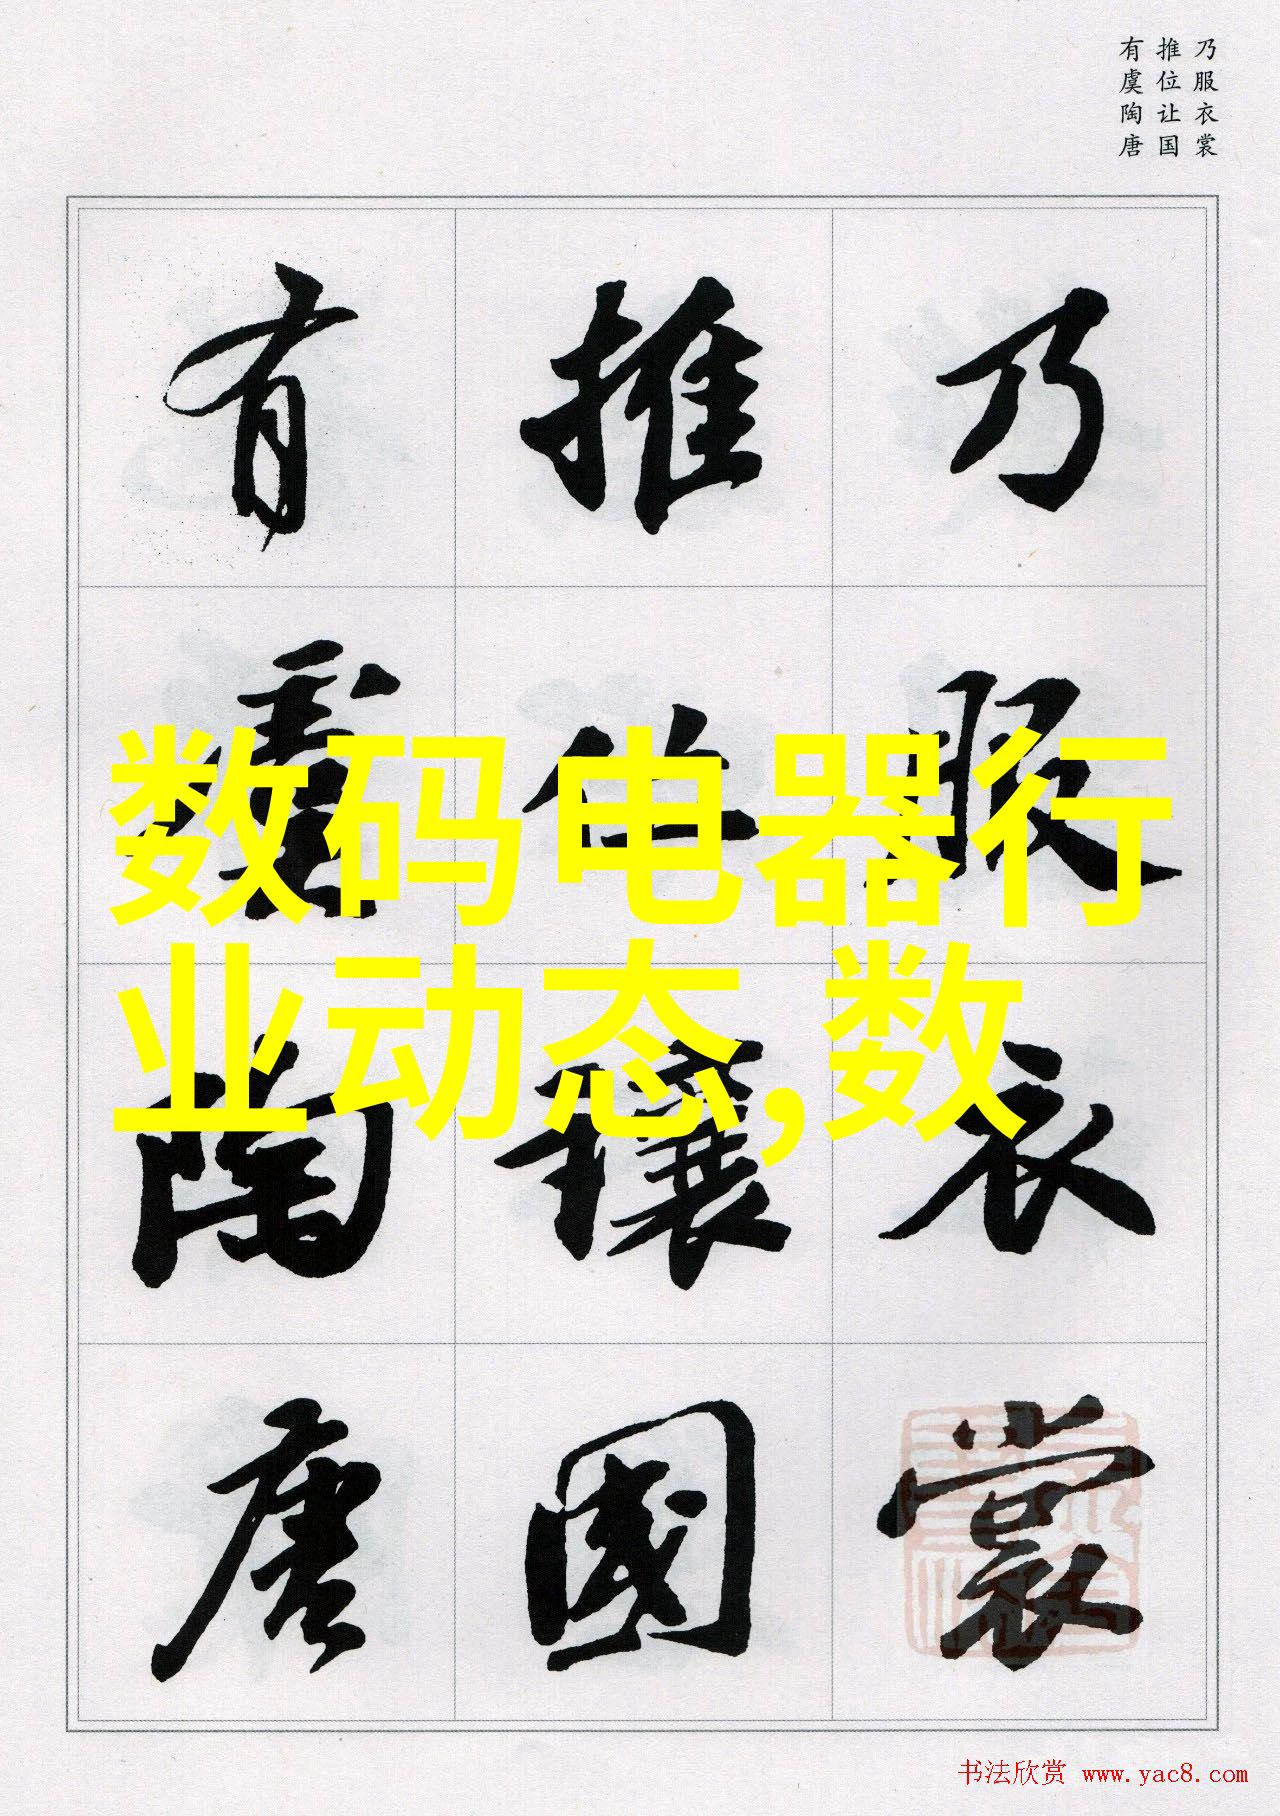 乃服衣裳
推位让国
有虞陶唐
乃服衣裳
推位讓國
有虞陶唐
数码电器行
业动态,数
书法欣赏 www.yac8.com